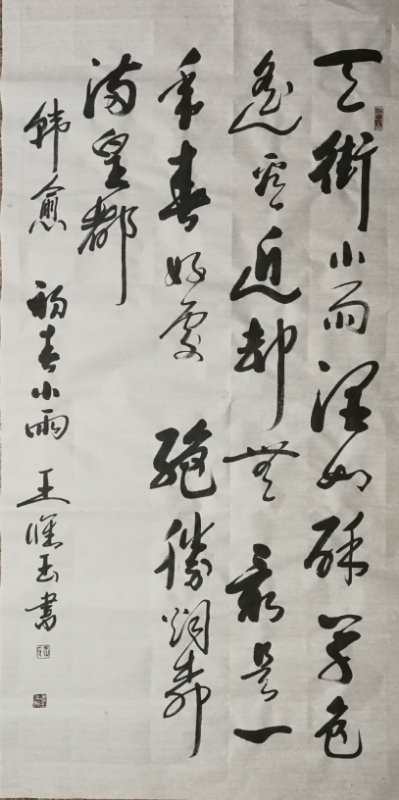 天街小雨润如酥草色
遥看近却無最是一
年春好處絕勝煙柳
满皇都
韩愈 初春小雨 王 玉書